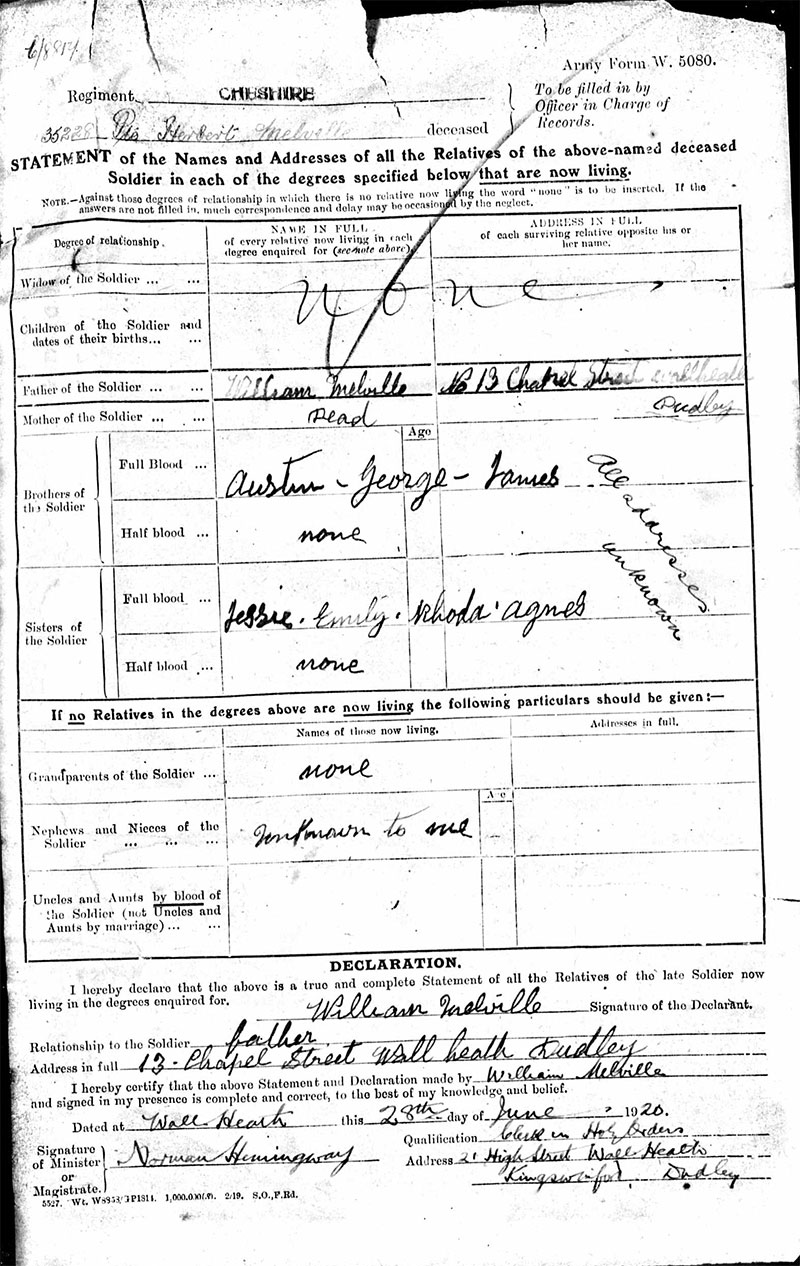 6/8817
Army Form W. 5080.
Regiment CHESHIRE
To be filled in by
Officer in Charge of
Records.
35228 Pte Herbert Melville deceased
STATEMENT of the Names and Addresses of all the Relatives of the above-named deceased
Soldier in each of the degrees specified below that are now living.
NOTE.—Against those degrees of relationship in which there is no relative now living the word "none" is to be inserted. If the
answers are not filled in, much correspondence and delay may be occasioned by the neglect.
Degree of relationship.
NAME IN FULL
of every relative now living in each
degree enquired for (see note above).
ADDRESS IN FULL
of each surviving relative opposite his or
her name.
Widow of the Soldier ... ...
none
Children of the Soldier and
dates of their births... ...
Father of the Soldier ... ... William Melville No 13 Chapel Street Wallheath
Dudley
Mother of the Soldier ... ... Dead
Age
Brothers of
the Soldier
Full Blood ... Austin - George - James
Half blood ... none
All addresses
unknown
Sisters of
the Soldier
Full blood ... Jessie. Emily. Rhoda. Agnes
Half blood ... none
If no Relatives in the degrees above are now living the following particulars should be given:—
Names of those now living. Addresses in full.
Grandparents of the Soldier ... none
Nephews and Nieces of the
Soldier ... ... ... Unknown to me
Uncles and Aunts by blood of
the Soldier (not Uncles and
Aunts by marriage) ... ...
DECLARATION.
I hereby declare that the above is a true and complete Statement of all the Relatives of the late Soldier now
living in the degrees enquired for.
William Melville Signature of the Declarant.
Relationship to the Soldier father
Address in full 13 - Chapel Street Wall heath Dudley
I hereby certify that the above Statement and Declaration made by William Melville
and signed in my presence is complete and correct, to the best of my knowledge and belief.
Dated at Wall Heath this 28th day of June 1920.
Signature
of Minister
or
Magistrate.
Norman Hemingway
Qualification Clerk in Holy Orders
Address 21 High Street Wall Heath
Kingswinford Dudley
1,000,000. 2/19. S.O., F.Rd.